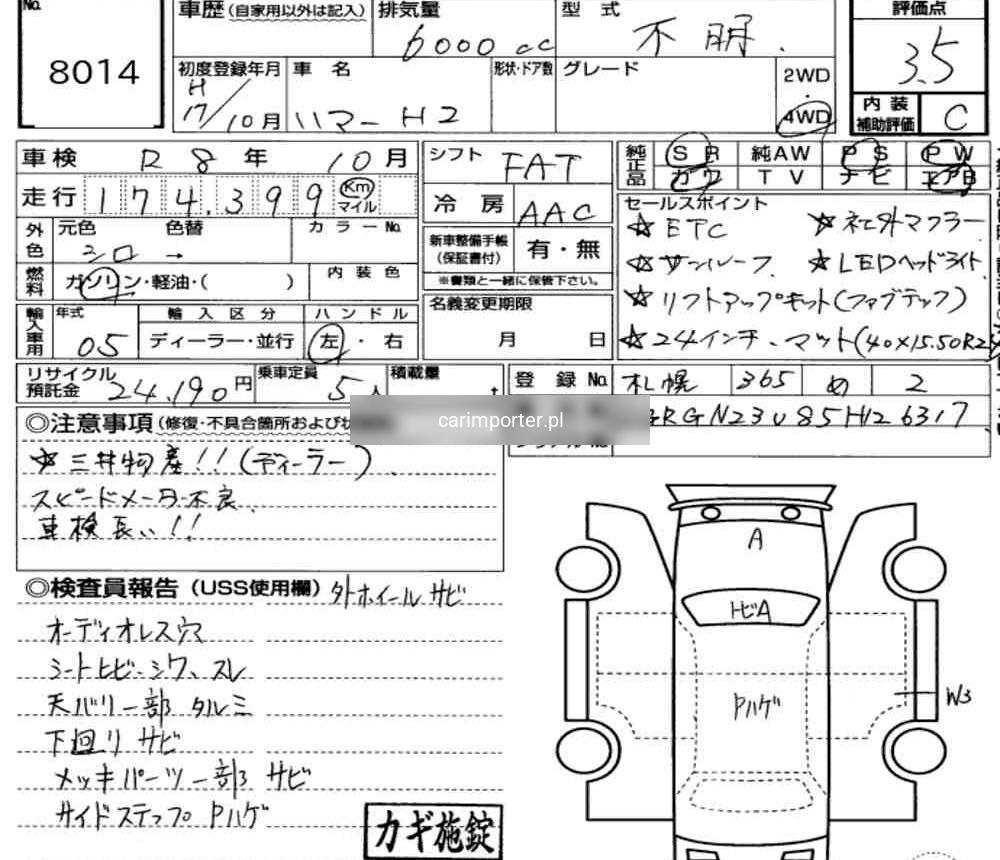 No.
8014
車歴(自家用以外は記入)
排気量
6000cc
型式
不明.
評価点
3.5
初度登録年月
H17/10月
車名
ハマーH2
形状・ドア数
グレード
2WD
・
4WD
内装補助評価
C
車検 R8年10月
シフト
FAT
純正品
SR 純AW PS PW
カワ TV ナビ エアB
走行 174.399 Km マイル
冷房 AAC
外色
元色 色替 カラーNo.
シロ →
新車整備手帳(保証書付)
有・無
※書類と一緒に保管下さい。
燃料
ガソリン・軽油・( )
内装色
セールスポイント
☆ETC ☆社外マフラー
☆サンルーフ ☆LEDヘッドライト
☆リフトアップキット(ファブテック)
☆24インチ、マット(40×15.50R24
名義変更期限
月 日
輸入車用
年式
05
輸入区分
ディーラー・並行
ハンドル
左・右
リサイクル預託金
24,190円
乗車定員
5人
積載量
t
登録No.
札幌 365 め 2
GRGN23U85H126317
carimporter.pl
◎注意事項(修復・不具合箇所および
☆三井物産!!(ディーラー).
スピードメーター不良.
車検長い!!
◎検査員報告(USS使用欄)
外ホイールサビ
オーディオレス穴
シートヒビ・シワ、スレ
天バリ一部タルミ
下廻りサビ
メッキパーツ一部サビ
サイドステップPハゲ
カギ施錠
A
トビA
Pハゲ
W3